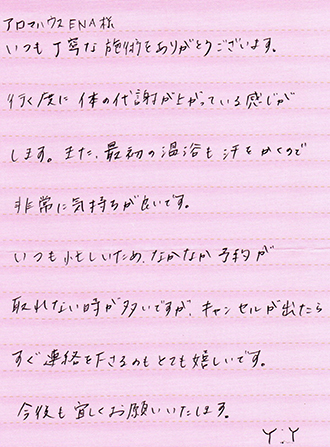 アロマハウスENA様
いつも丁寧な施術をありがとうございます。
行く度に体の代謝が上がっている感じが
します。また、最初の温浴も汗をかくので
非常に気持ちが良いです。
いつも忙しいため、なかなか予約が
取れない時が多いですが、キャンセルが出たら
すぐ連絡を下さるのもとても嬉しいです。
今後も宜しくお願いいたします。
Y.Y